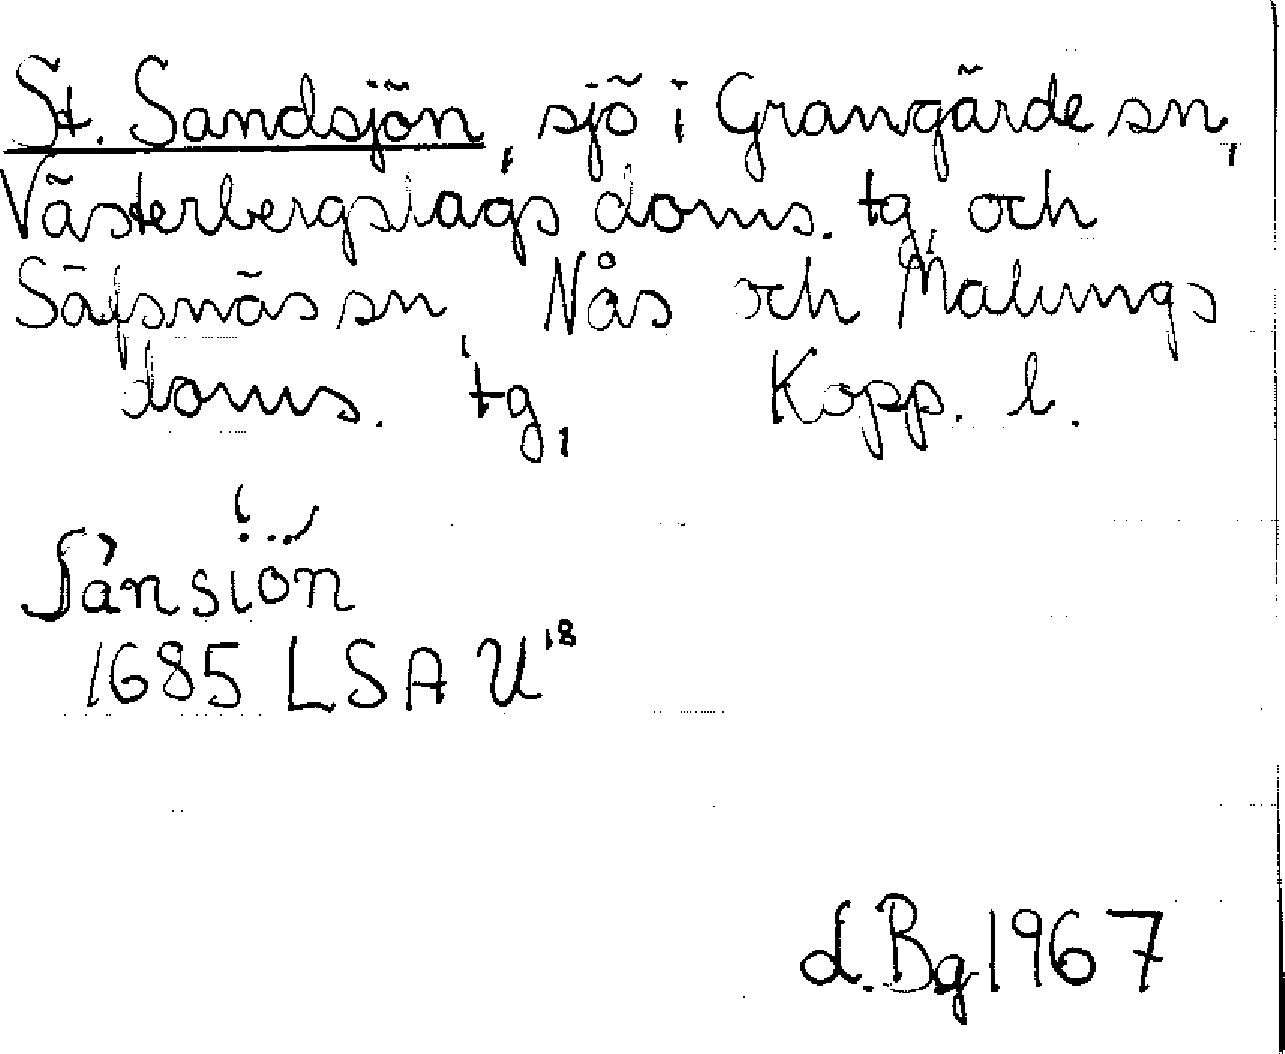 St. Sandsjön, sjö i Grangärde sn,
Västerbergslags doms. tg, och
Säfsnäs sn, Nås och Malungs
doms. tg, Kopp. l.
Sånsiön
1685 LSA U¹⁸
L.Bg 1967